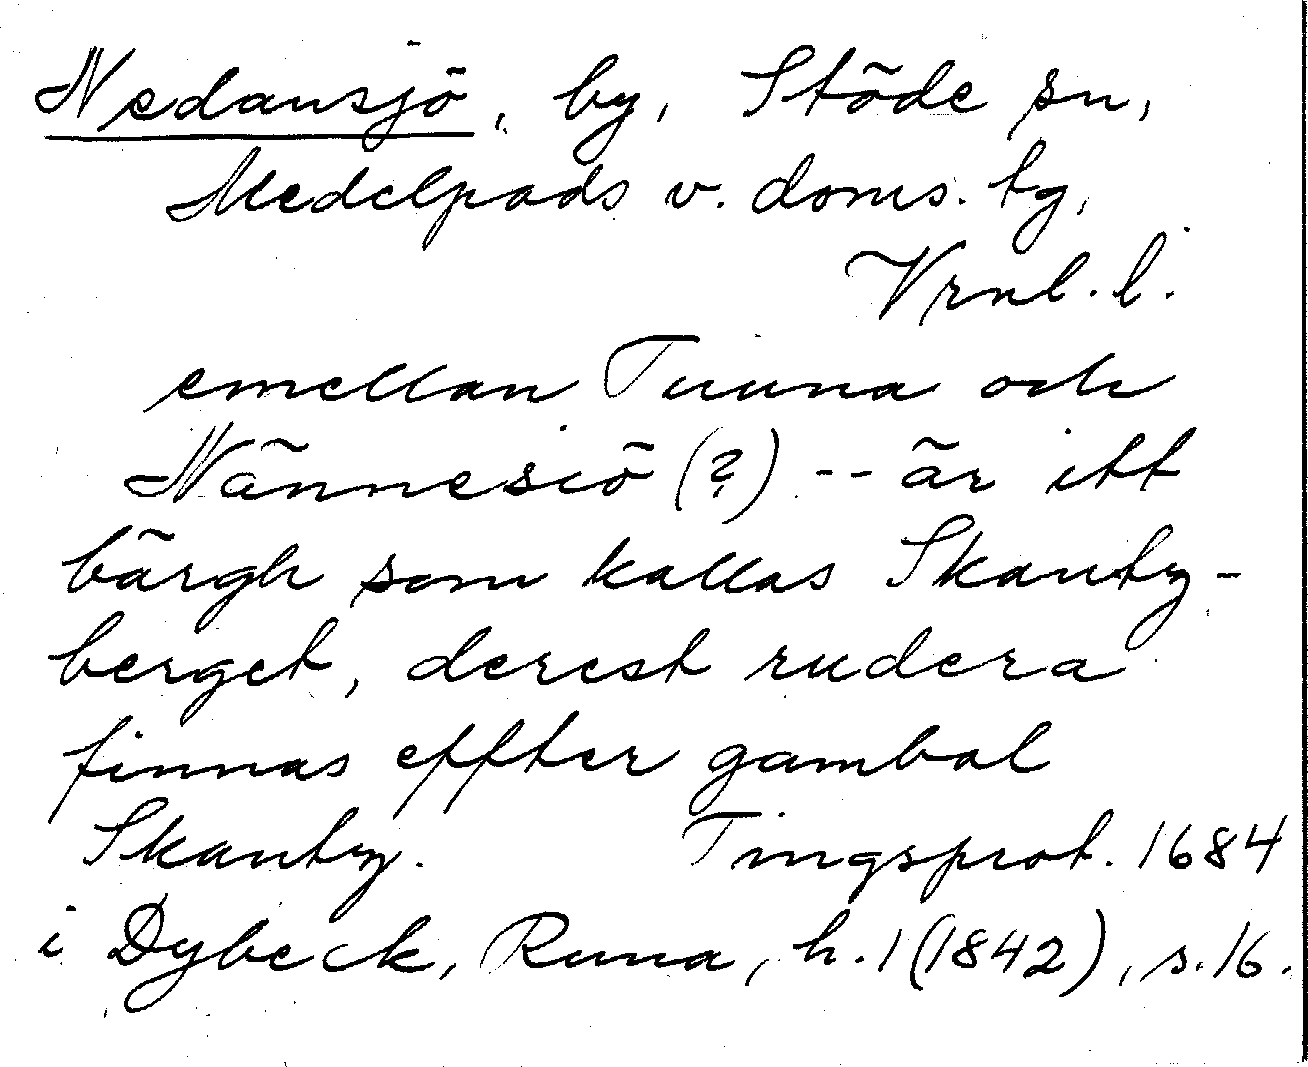 Nedansjö, by, Stöde sn,
Medelpads v. doms. tg,
Vrnl. l.
emellan Tuuna och
Nännesiö (?) -- är itt
bärgh som kallas Skantz-
berget, derest rudera
finnas effter gambal
Skantz. Tingsprot. 1684
i Dybeck, Runa, h. 1 (1842), s. 16.